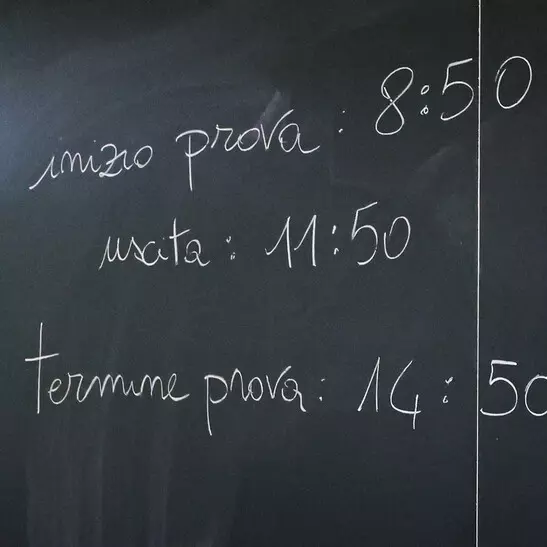 inizio prova: 8:50
uscita: 11:50
termine prova: 14:50